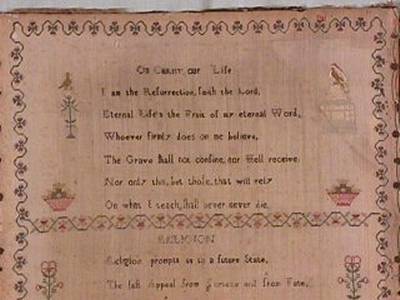 On Christ, our Life
I am the Resurrection, saith the Lord,
Eternal Life's the Fruit of my eternal Word,
Whoever firmly does on me believe,
The Grave shall not confine, nor Hell receive.
Nor only this, but those, that will rely
On what I teach, shall never never die.
RELIGION
Religion prompts us to a future State,
The last Appeal from Fortune and from Fate,